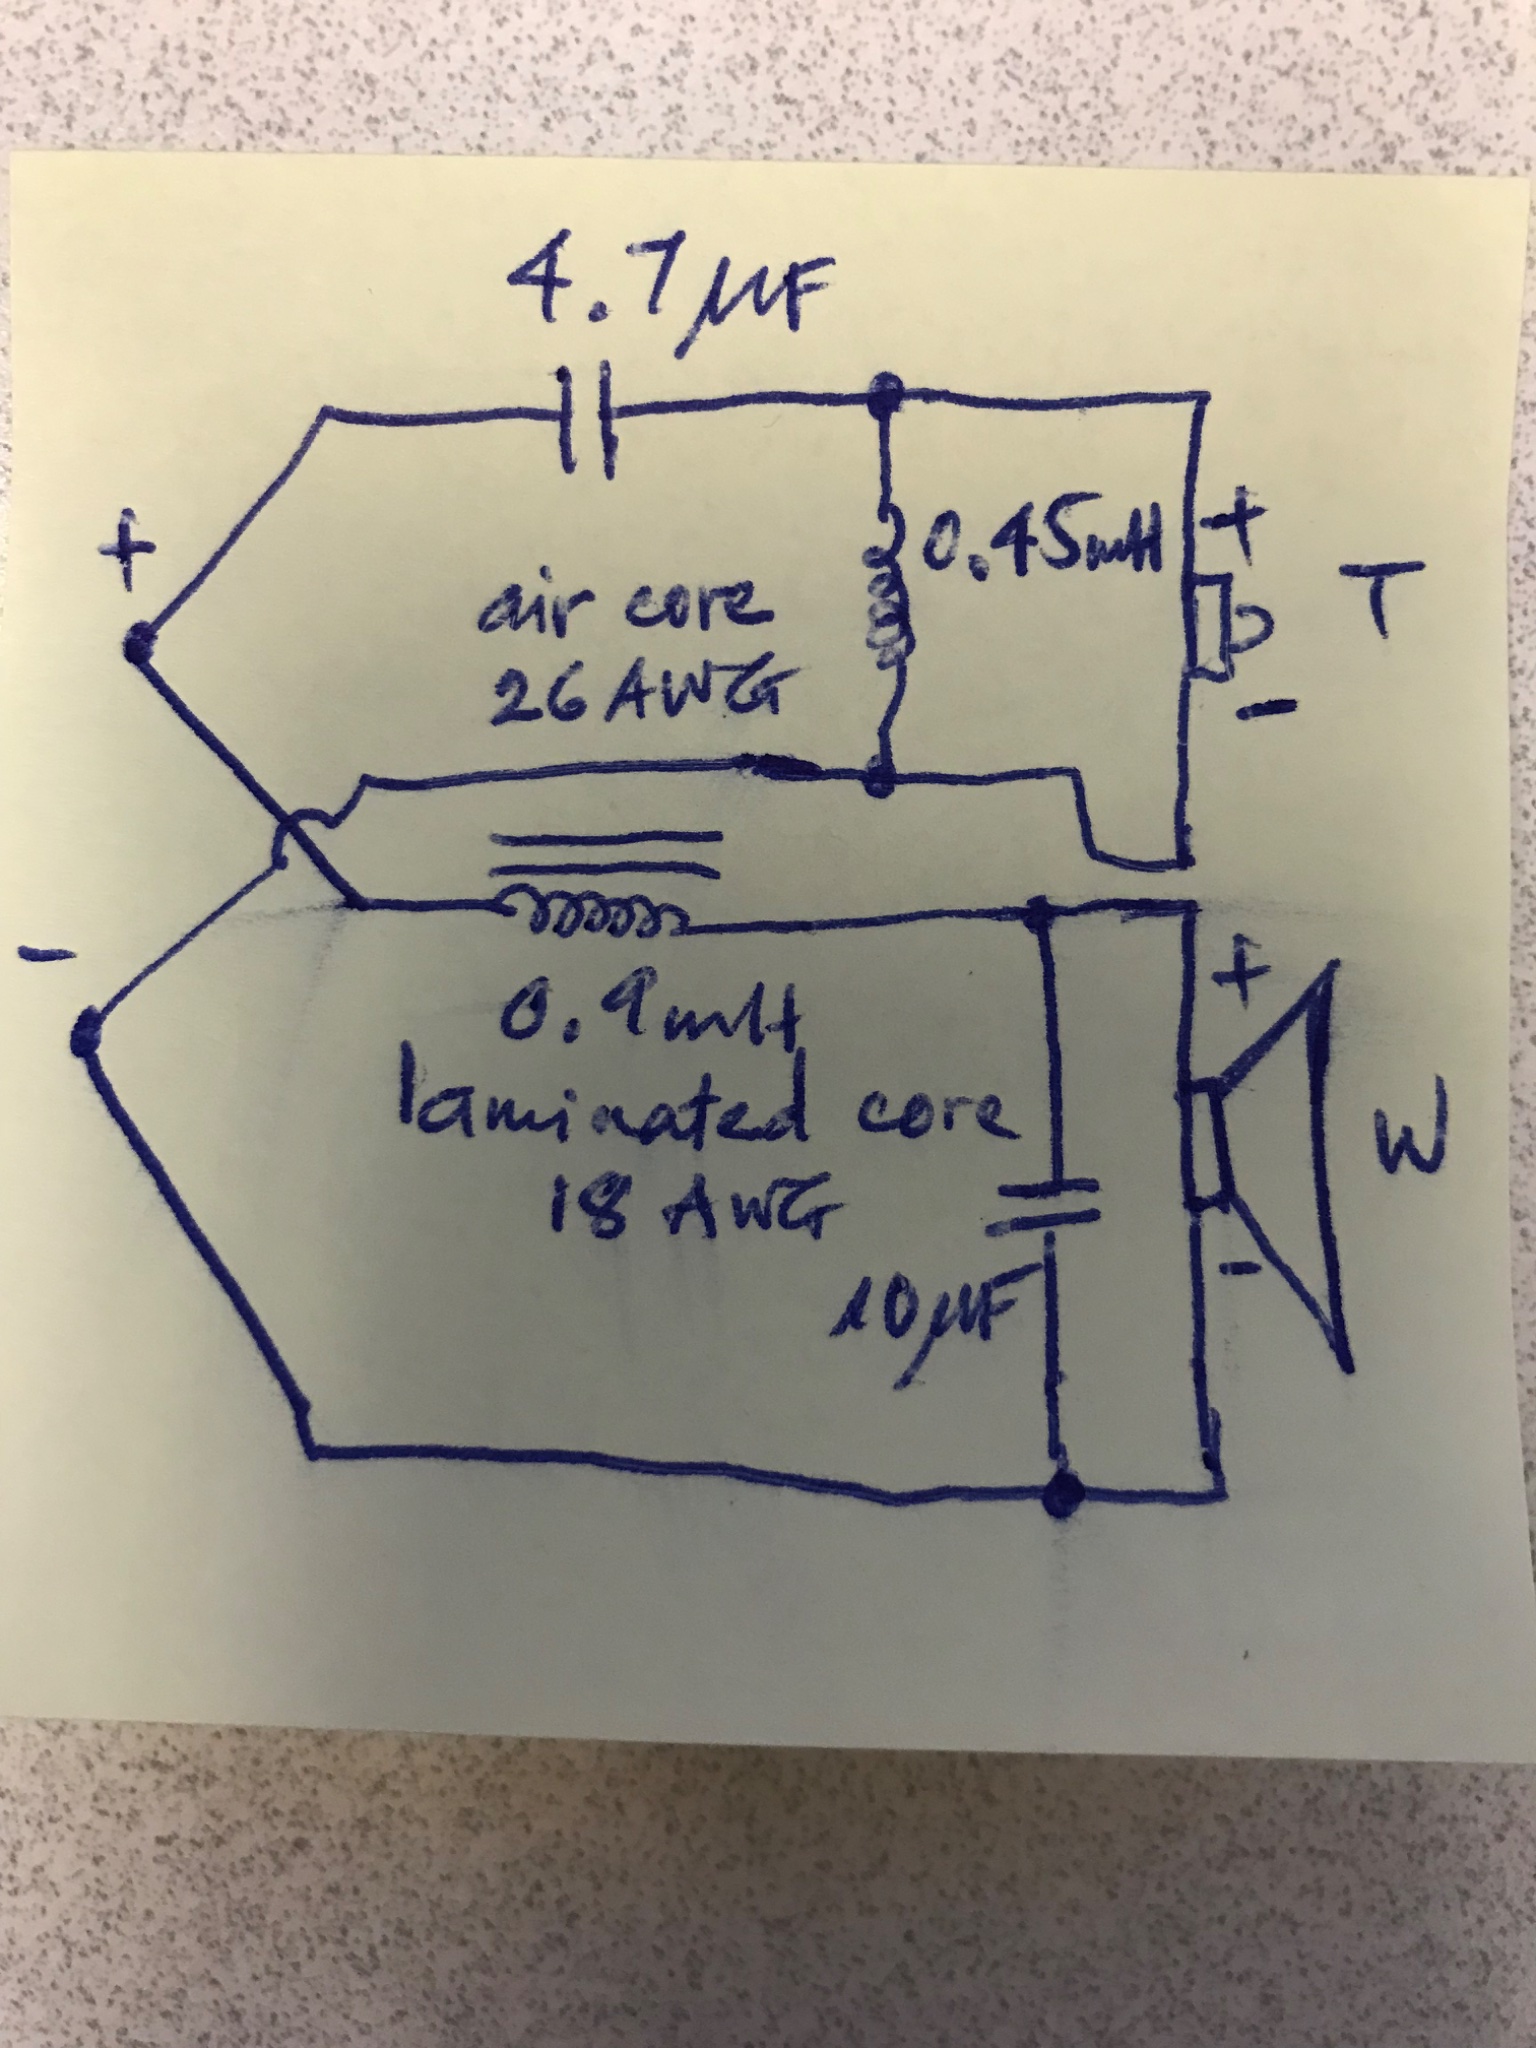 4.7µF
+
0.45mH
+
T
air core
26 AWG
-
-
0.9mH
laminated core
18 AWG
+
W
-
10µF